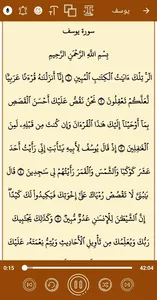 يوسف
سورة يوسف
بِسْمِ اللَّهِ الرَّحْمَٰنِ الرَّحِيمِ
الر ۚ تِلْكَ ءَايَٰتُ الْكِتَٰبِ الْمُبِينِ ۝١ إِنَّا أَنزَلْنَٰهُ قُرْءَٰنًا عَرَبِيًّا
لَّعَلَّكُمْ تَعْقِلُونَ ۝٢ نَحْنُ نَقُصُّ عَلَيْكَ أَحْسَنَ الْقَصَصِ
بِمَا أَوْحَيْنَا إِلَيْكَ هَٰذَا الْقُرْءَانَ وَإِن كُنتَ مِن قَبْلِهِ لَمِنَ
الْغَٰفِلِينَ ۝٣ إِذْ قَالَ يُوسُفُ لِأَبِيهِ يَٰأَبَتِ إِنِّي رَأَيْتُ أَحَدَ
عَشَرَ كَوْكَبًا وَالشَّمْسَ وَالْقَمَرَ رَأَيْتُهُمْ لِي سَٰجِدِينَ ۝٤ قَالَ
يَٰبُنَيَّ لَا تَقْصُصْ رُءْيَاكَ عَلَىٰ إِخْوَتِكَ فَيَكِيدُوا لَكَ كَيْدًا ۖ
إِنَّ الشَّيْطَٰنَ لِلْإِنسَٰنِ عَدُوٌّ مُّبِينٌ ۝٥ وَكَذَٰلِكَ يَجْتَبِيكَ
رَبُّكَ وَيُعَلِّمُكَ مِن تَأْوِيلِ الْأَحَادِيثِ وَيُتِمُّ نِعْمَتَهُ عَلَيْكَ
0:15 42:04